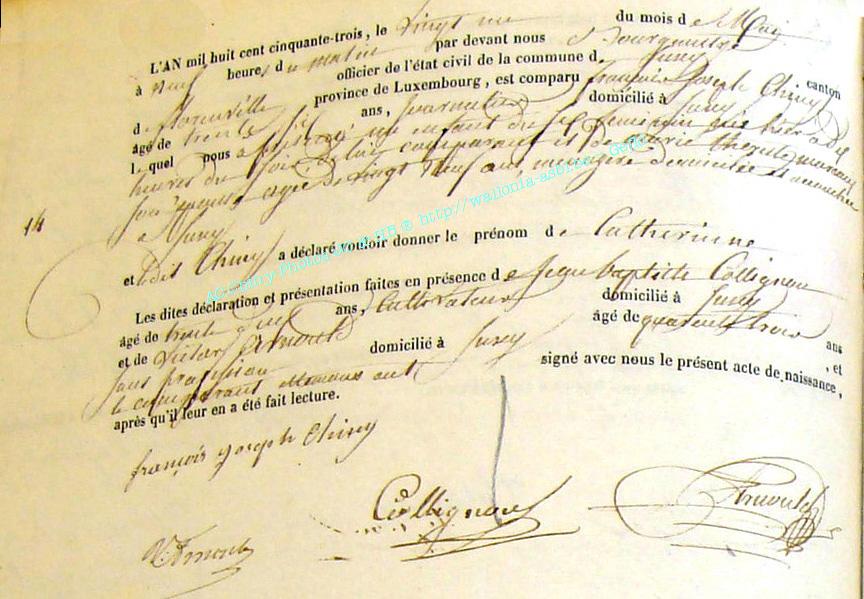 L'AN mil huit cent cinquante-trois, le vingt un du mois de Mai
à neuf heures du matin par devant nous Bourgmestre
officier de l'état civil de la commune de Jusey
province de Luxembourg, est comparu françois Joseph Chiny canton
de florenville
âgé de trente ans, Journalier domicilié à Jusey
lequel nous a présenté un enfant du sexe féminin que hier a dix
heures du soir de lui comparant et de Marie Therese
son épouse agée de vingt neuf ans ménagère domiciliée et accouchée
14
a Jusey
et ledit Chiny a déclaré vouloir donner le prénom de Catherinne
Les dites déclaration et présentation faites en présence de Jean baptiste Collignon
âgé de trente ans, Cultivateur domicilié à Jusey
et de Victor Arnould âgé de quarante trois ans
sans profession domicilié à Jusey , et
le comparant et temoins ont signé avec nous le présent acte de naissance,
après qu'il leur en a été fait lecture.
françois joseph Chiny
Collignon
Arnould
V. Arnould
Academy Photogroup HB ® http://wallonia-asbl.be